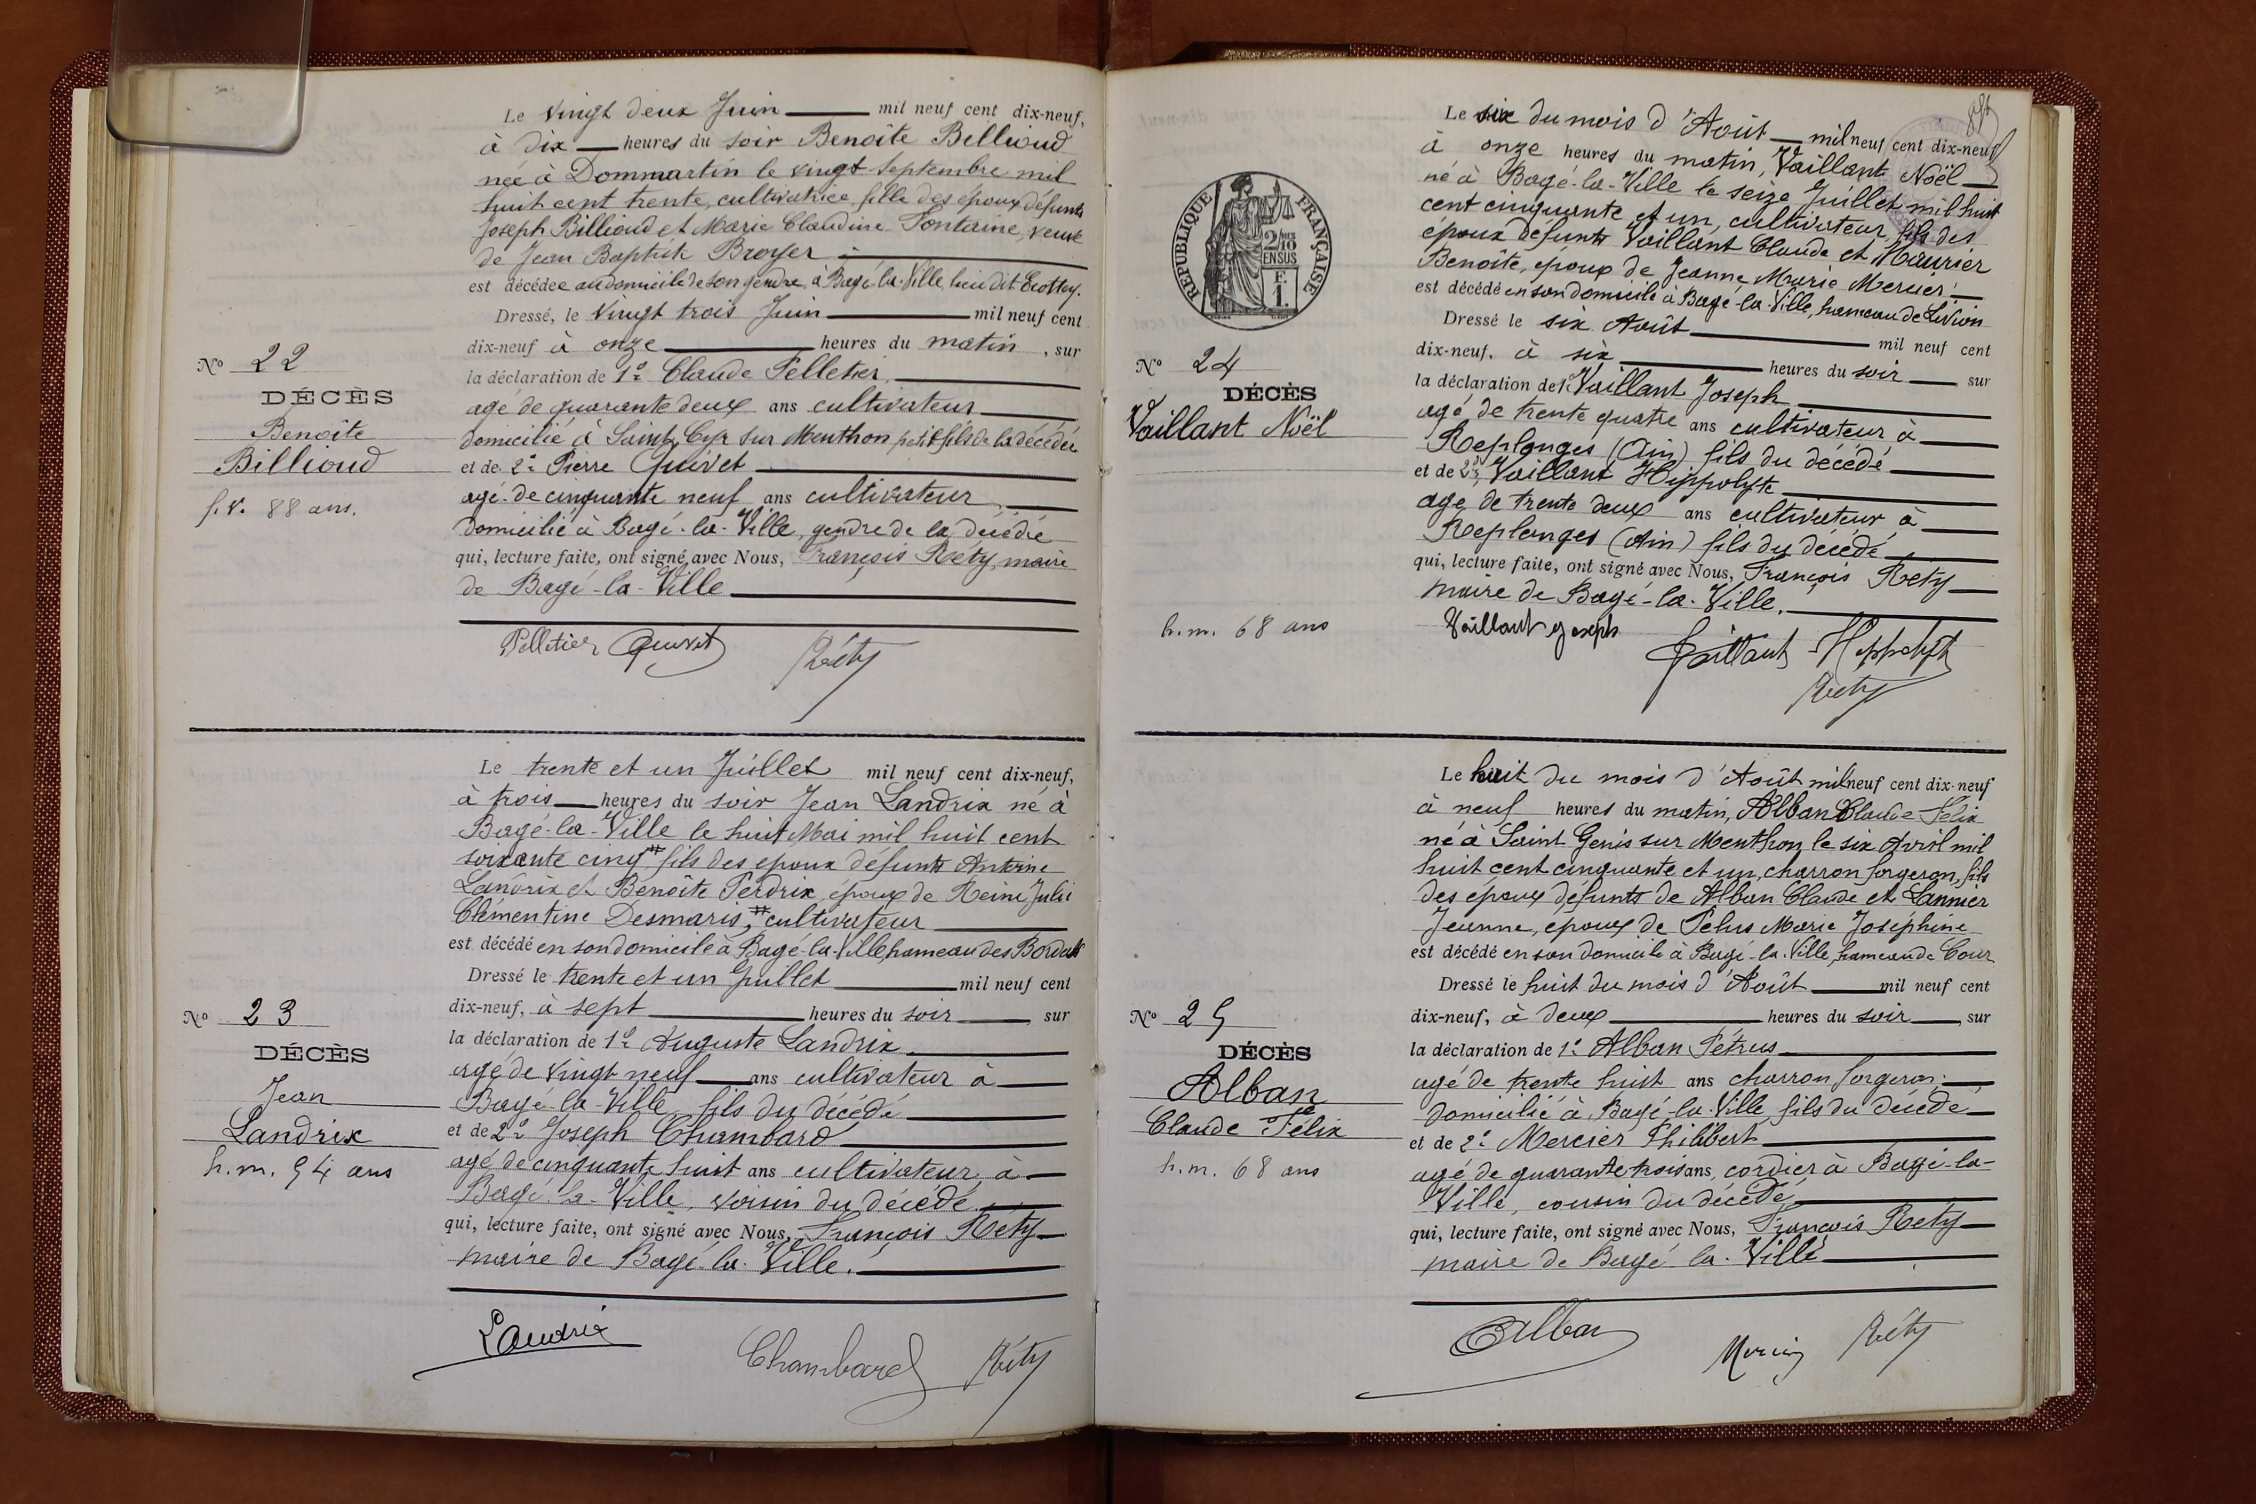 Le vingt deux Juin mil neuf cent dix-neuf,
à dix heures du soir Benoîte Bellioud
née à Dommartin le vingt septembre mil
huit cent trente, cultivatrice fille des époux défunts
Joseph Billioud et Marie Claudine Fontaine, veuve
de Jean Baptiste Broyer
est décédée au domicile de son gendre, à Bagé-la-Ville, lieu dit Ecottey.
Dressé, le vingt trois Juin mil neuf cent
dix-neuf à onze heures du matin, sur
la déclaration de 1º Claude Pelletier,
agé de quarante deux ans cultivateur
domicilié à Saint Cyr sur Menthon petit fils de la décédée
et de 2º Pierre Quivet
agé de cinquante neuf ans cultivateur
domicilié à Bagé-la-Ville, gendre de la décédée
qui, lecture faite, ont signé avec Nous, François Réty, maire
de Bagé-la-Ville
Pelletier Quivet Réty
Nº 22
DÉCÈS
Benoîte
Billioud
f.v. 88 ans.
Le trente et un Juillet mil neuf cent dix-neuf,
à trois heures du soir Jean Landrix né à
Bagé-la-Ville le huit Mai mil huit cent
soixante cinq # fils des époux défunts Antoine
Landrix et Benoîte Perdrix, époux de Reine Julie
Clémentine Desmaris, # cultivateur
est décédé en son domicile à Bagé-la-Ville, hameau des
Dressé le trente et un Juillet mil neuf cent
dix-neuf, à sept heures du soir, sur
la déclaration de 1º Auguste Landrix
agé de vingt neuf ans cultivateur à
Bagé-la-Ville, fils du décédé
et de 2º Joseph Chambard
agé de cinquante huit ans cultivateur à
Bagé-la-Ville, voisin du décédé
qui, lecture faite, ont signé avec Nous, François Réty
maire de Bagé-la-Ville.
Landrix
Chambard Réty
Nº 23
DÉCÈS
Jean
Landrix
h.m. 54 ans
Le six du mois d'Août mil neuf cent dix-neuf
à onze heures du matin, Vaillant Noël
né à Bagé-la-Ville le seize Juillet mil huit
cent cinquante et un, cultivateur, fils des
époux défunts Vaillant Claude et Maurier
Benoîte, époux de Jeanne Marie Mercier
est décédé en son domicile à Bagé-la-Ville, hameau de Livion
Dressé le six Août mil neuf cent
dix-neuf, à six heures du soir sur
la déclaration de 1º Vaillant Joseph
agé de trente quatre ans cultivateur à
Replonges (Ain) fils du décédé
et de 2º, Vaillant Hippolyte
age de trente deux ans cultivateur à
Replonges (Ain) fils du décédé
qui, lecture faite, ont signé avec Nous, François Réty
maire de Bagé-la-Ville.
Vaillant Joseph
Vaillant Hippolyte
Réty
RÉPUBLIQUE FRANÇAISE
2/10
EN SUS
F.
1.
Nº 24
DÉCÈS
Vaillant Noël
h.m. 68 ans
Le huit du mois d'Août mil neuf cent dix-neuf
à neuf heures du matin, Alban Claude Félix
né à Saint Genis sur Menthon le six Avril mil
huit cent cinquante et un, charron forgeron, fils
des époux défunts de Alban Claude et Lannier
Jeanne, époux de Pelus Marie Joséphine
est décédé en son domicile à Bagé-la-Ville, hameau de Cour
Dressé le huit du mois d'Août mil neuf cent
dix-neuf, à deux heures du soir, sur
la déclaration de 1º Alban Pétrus
agé de trente huit ans charron forgeron,
domicilié à Bagé-la-Ville fils du décédé
et de 2º Mercier Philibert
agé de quarante trois ans, cordier à Bagé-la-
Ville, cousin du décédé,
qui, lecture faite, ont signé avec Nous, François Réty
maire de Bagé-la-Ville
Alban Mercier Réty
Nº 25
DÉCÈS
Alban
Claude Félix
h.m. 68 ans